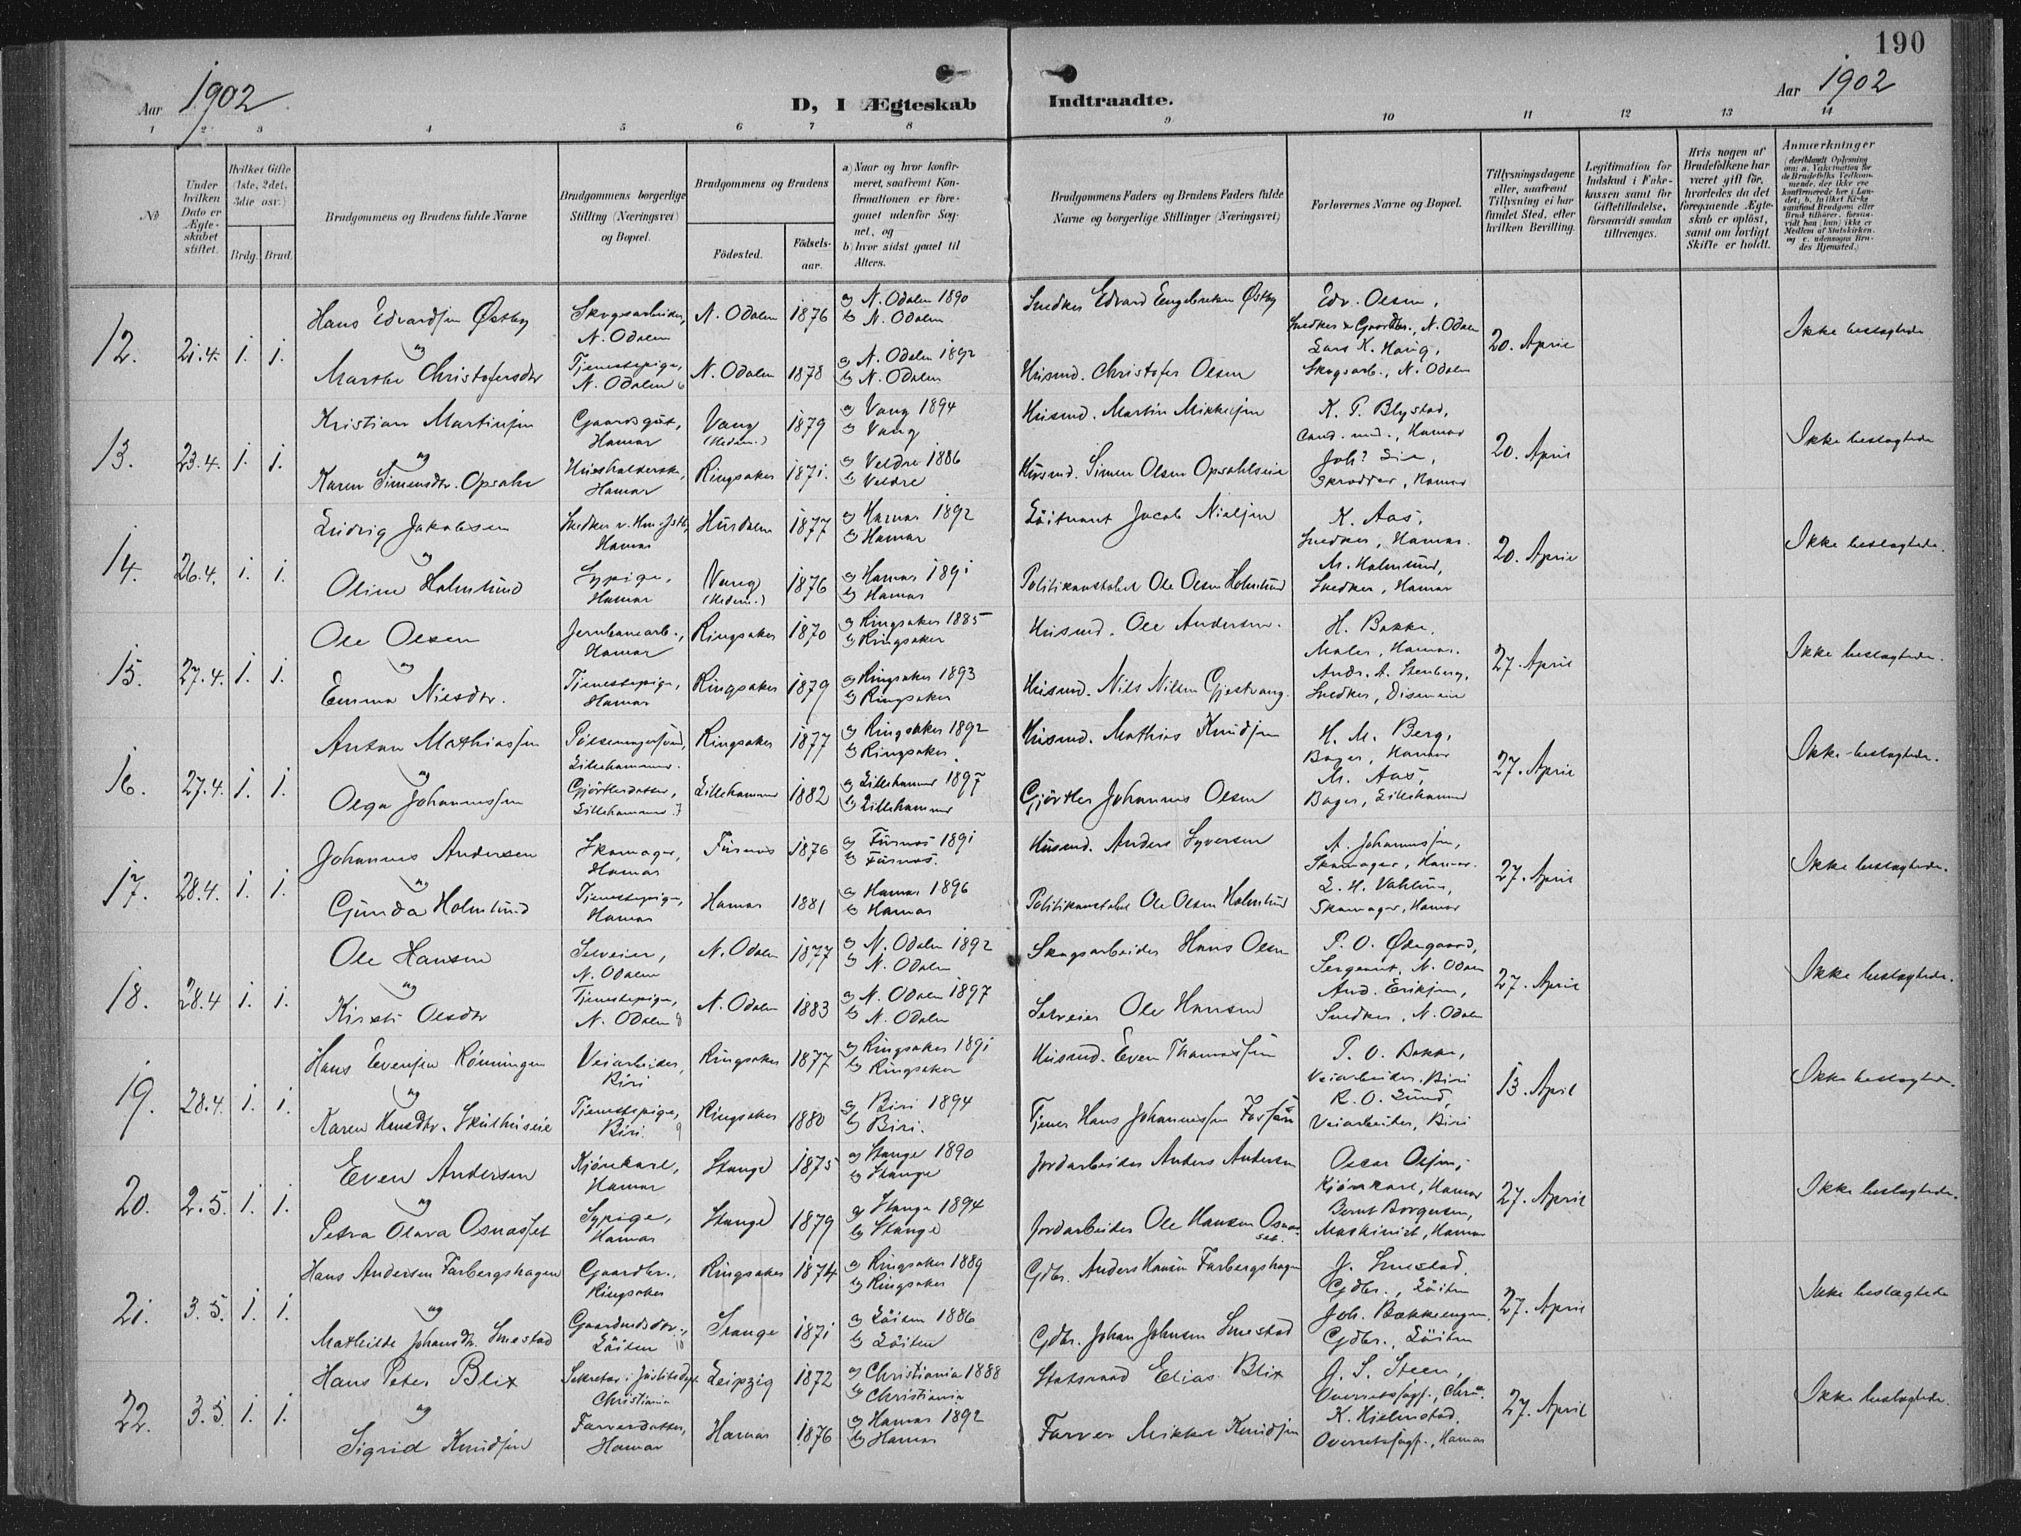 190
Aar 1902
D, I Ægteskab Indtraadte.
Aar 1902
1 2 3 4 5 6 7 8 9 10 11 12 13 14
No
Under hvilken Dato er Ægteskabet stiftet.
Hvilket Gifte (1ste, 2det, 3die osv.)
Brdg. Brud.
Brudgommens og Brudens fulde Navne
Brudgommens borgerlige Stilling (Næringsvei) og Bopæl.
Brudgommens og Brudens
Fødested.
Fødselsaar.
a) Naar og hvor konfirmeret, saafremt Konfirmationen er foregaaet udenfor Sognet, og
b) hvor sidst gaaet til Alters.
Brudgommens Faders og Brudens Faders fulde Navne og borgerlige Stillinger (Næringsvei)
Forlovernes Navne og Bopæl.
Tillysningsdagene eller, saafremt Tillysning ei har fundet Sted, efter hvilken Bevilling.
Legitimation for Indskud i Enkekassen samt for Giftetilladelse, forsaavidt saadan tiltrænges.
Hvis nogen af Brudefolkene har været gift før, hvorledes da det foregaaende Ægteskab er opløst, samt om lovligt Skifte er holdt.
Anmærkninger
12. 21.4. 1. 1.
Hans Edvardsen Østby
Skogsarbeider, N. Odalen
N. Odalen 1876
a) N. Odalen 1890
b) N. Odalen
Snedker Edvard Engebretsen Østby
Edv. Olsen,
Snedker & Gaardbr., N. Odalen
og
Marthe Christofersdtr
Tjenestepige, N. Odalen
N. Odalen 1878
a) N. Odalen 1892
b) N. Odalen
Husmd. Christofer Olsen
Lars K. Haug,
Skogsarb., N. Odalen
20. April
Ikke beslægtede
13. 23.4. 1. 1.
Kristian Martinsen
Gaardsgut, Hamar
Vang (Hedem.) 1879
a) Vang 1894
b) Vang
Husmd. Martin Mikkelsen
K. P. Blystad,
Cand. med., Hamar
og
Karen Simensdtr. Opsahl
Hamar
Ringsaker 1871.
a) Veldre 1886
b) Veldre
Husmd. Simen Olsen Opsahlseie
Skrædder, Hamar
20. April
Ikke beslægtede
14. 26.4. 1. 1.
Ludvig Jakobsen
Hamar
Hurdalen 1877
a) Hamar 1892
b) Hamar
Löitnant Jacob Nielsen
K. Aas,
Snedker, Hamar.
og
Oline Holmlund
Sypige, Hamar
Vang (Hedem.) 1876
a) Hamar 1891
b) Hamar
Politikonstabel Ole Olsen Holmlund
M. Holmlund,
Snedker, Hamar
20. April
Ikke beslægtede.
15. 27.4. 1. 1.
Ole Olsen
Jernbanearb., Hamar
Ringsaker 1870
a) Ringsaker 1885
b) Ringsaker
Husmd. Ole Andersen.
H. Bakke.
Maler, Hamar.
og
Emma Nilsdtr.
Tjenestepige, Hamar
Ringsaker 1879
a) Ringsaker 1893
b) Ringsaker
Husmd. Nils Nilsen Gjestvang.
Andr. A. Stenberg,
Snedker,
27. April
Ikke beslægtede.
16. 27.4. 1. 1.
Anton Mathiassen
Pølsemagersvend, Lillehammer.
Ringsaker 1877
a) Ringsaker 1892
b) Ringsaker.
Husmd. Mathias Knudsen
H. M. Berg,
Bager, Hamar
og
Olga Johannessen
Gjörtlerdatter, Lillehammer
Lillehammer 1882
a) Lillehammer 1897
b) Lillehammer
Gjörtler Johannes Olsen
M. Aas,
Bager, Lillehammer
27. April
Ikke beslægtede.
17. 28.4. 1. 1.
Johannes Andersen
Skomager, Hamar
Furnes 1876
a) Furnes 1891
b) Furnes.
Husmd. Anders Syversen
A. Johannessen,
Skomager, Hamar.
og
Gunda Holmlund
Tjenestepige, Hamar
Hamar 1881
a) Hamar 1896
b) Hamar
Politikonstabel Ole Olsen Holmlund
Skomager, Hamar
27. April
Ikke beslægtede.
18. 28.4 1. 1.
Ole Hansen
Selveier, N. Odalen
N. Odalen 1877
a) N. Odalen 1892
b) N. Odalen
Skogsarbeider Hans Olsen
P. O. Ødegaard,
Sergeant, N. Odalen
og
Kirsti Olsdtr
Tjenestepige, N. Odalen
N. Odalen 1883
a) N. Odalen 1897
b) N. Odalen
Selveier Ole Hansen
And. Eriksen,
Snedker, N. Odalen
27. April
Ikke beslægtede.
19. 28.4. 1. 1.
Hans Evensen Rönningen
Veiarbeider, Biri
Ringsaker 1877
a) Ringsaker 1891
b) Ringsaker
Husmd. Even Thomassen
P. O. Bakke,
Veiarbeider, Biri
og
Karen Hansdtr. Skulhuseie
Tjenestepige, Biri. 9
Ringsaker 1880
a) Biri 1894
b) Biri.
Tjener Hans Johannessen
R. O. Lund,
Veiarbeider, Biri
13 April
Ikke beslægtede.
20. 2.5. 1. 1.
Even Andersen
Kjørekarl, Hamar
Stange 1875
a) Stange 1890
b) Stange
Jordarbeider Anders Andersen
Oscar Olsen,
Kjørekarl, Hamar
og
Petra Olava Osnasset
Sypige, Hamar
Stange 1879
a) Stange 1894
b) Stange
Jordarbeider Ole Hansen Osnasset.
Bernt Borgersen,
Maskinist, Hamar
27. April
Ikke beslægtede.
21. 3.5. 1. 1.
Hans Andersen Farbergshagen
Gaardbr., Ringsaker
Ringsaker 1874
a) Ringsaker 1889
b) Ringsaker
Gdbr. Anders Hansen Farbergshagen
J. Smestad.
Gdbr., Löiten
og
Mathilde Johansdtr. Smestad
Löiten 10
Stange 1871
a) Löiten 1886
b) Löiten
Gdbr. Johan Johnsen Smestad
Joh. Bækkengen,
Gdbr. Löiten
27. April
Ikke beslægtede
22. 3.5. 1. 1.
Hans Peter Blix
Sekretær i Justitsdept Christiania
Leipzig 1872
a) Christiania 1888
b) Christiania
Statsraad Elias Blix
J. S. Steen,
Overretssagf., Chra.
og
Sigrid Knudsen
Farverdatter, Hamar
Hamar 1876
a) Hamar 1892
b) Hamar
Farver Mikkel Knudsen
K. Hjelmstad.
Overretssagf., Hamar
27. April
Ikke beslægtede.